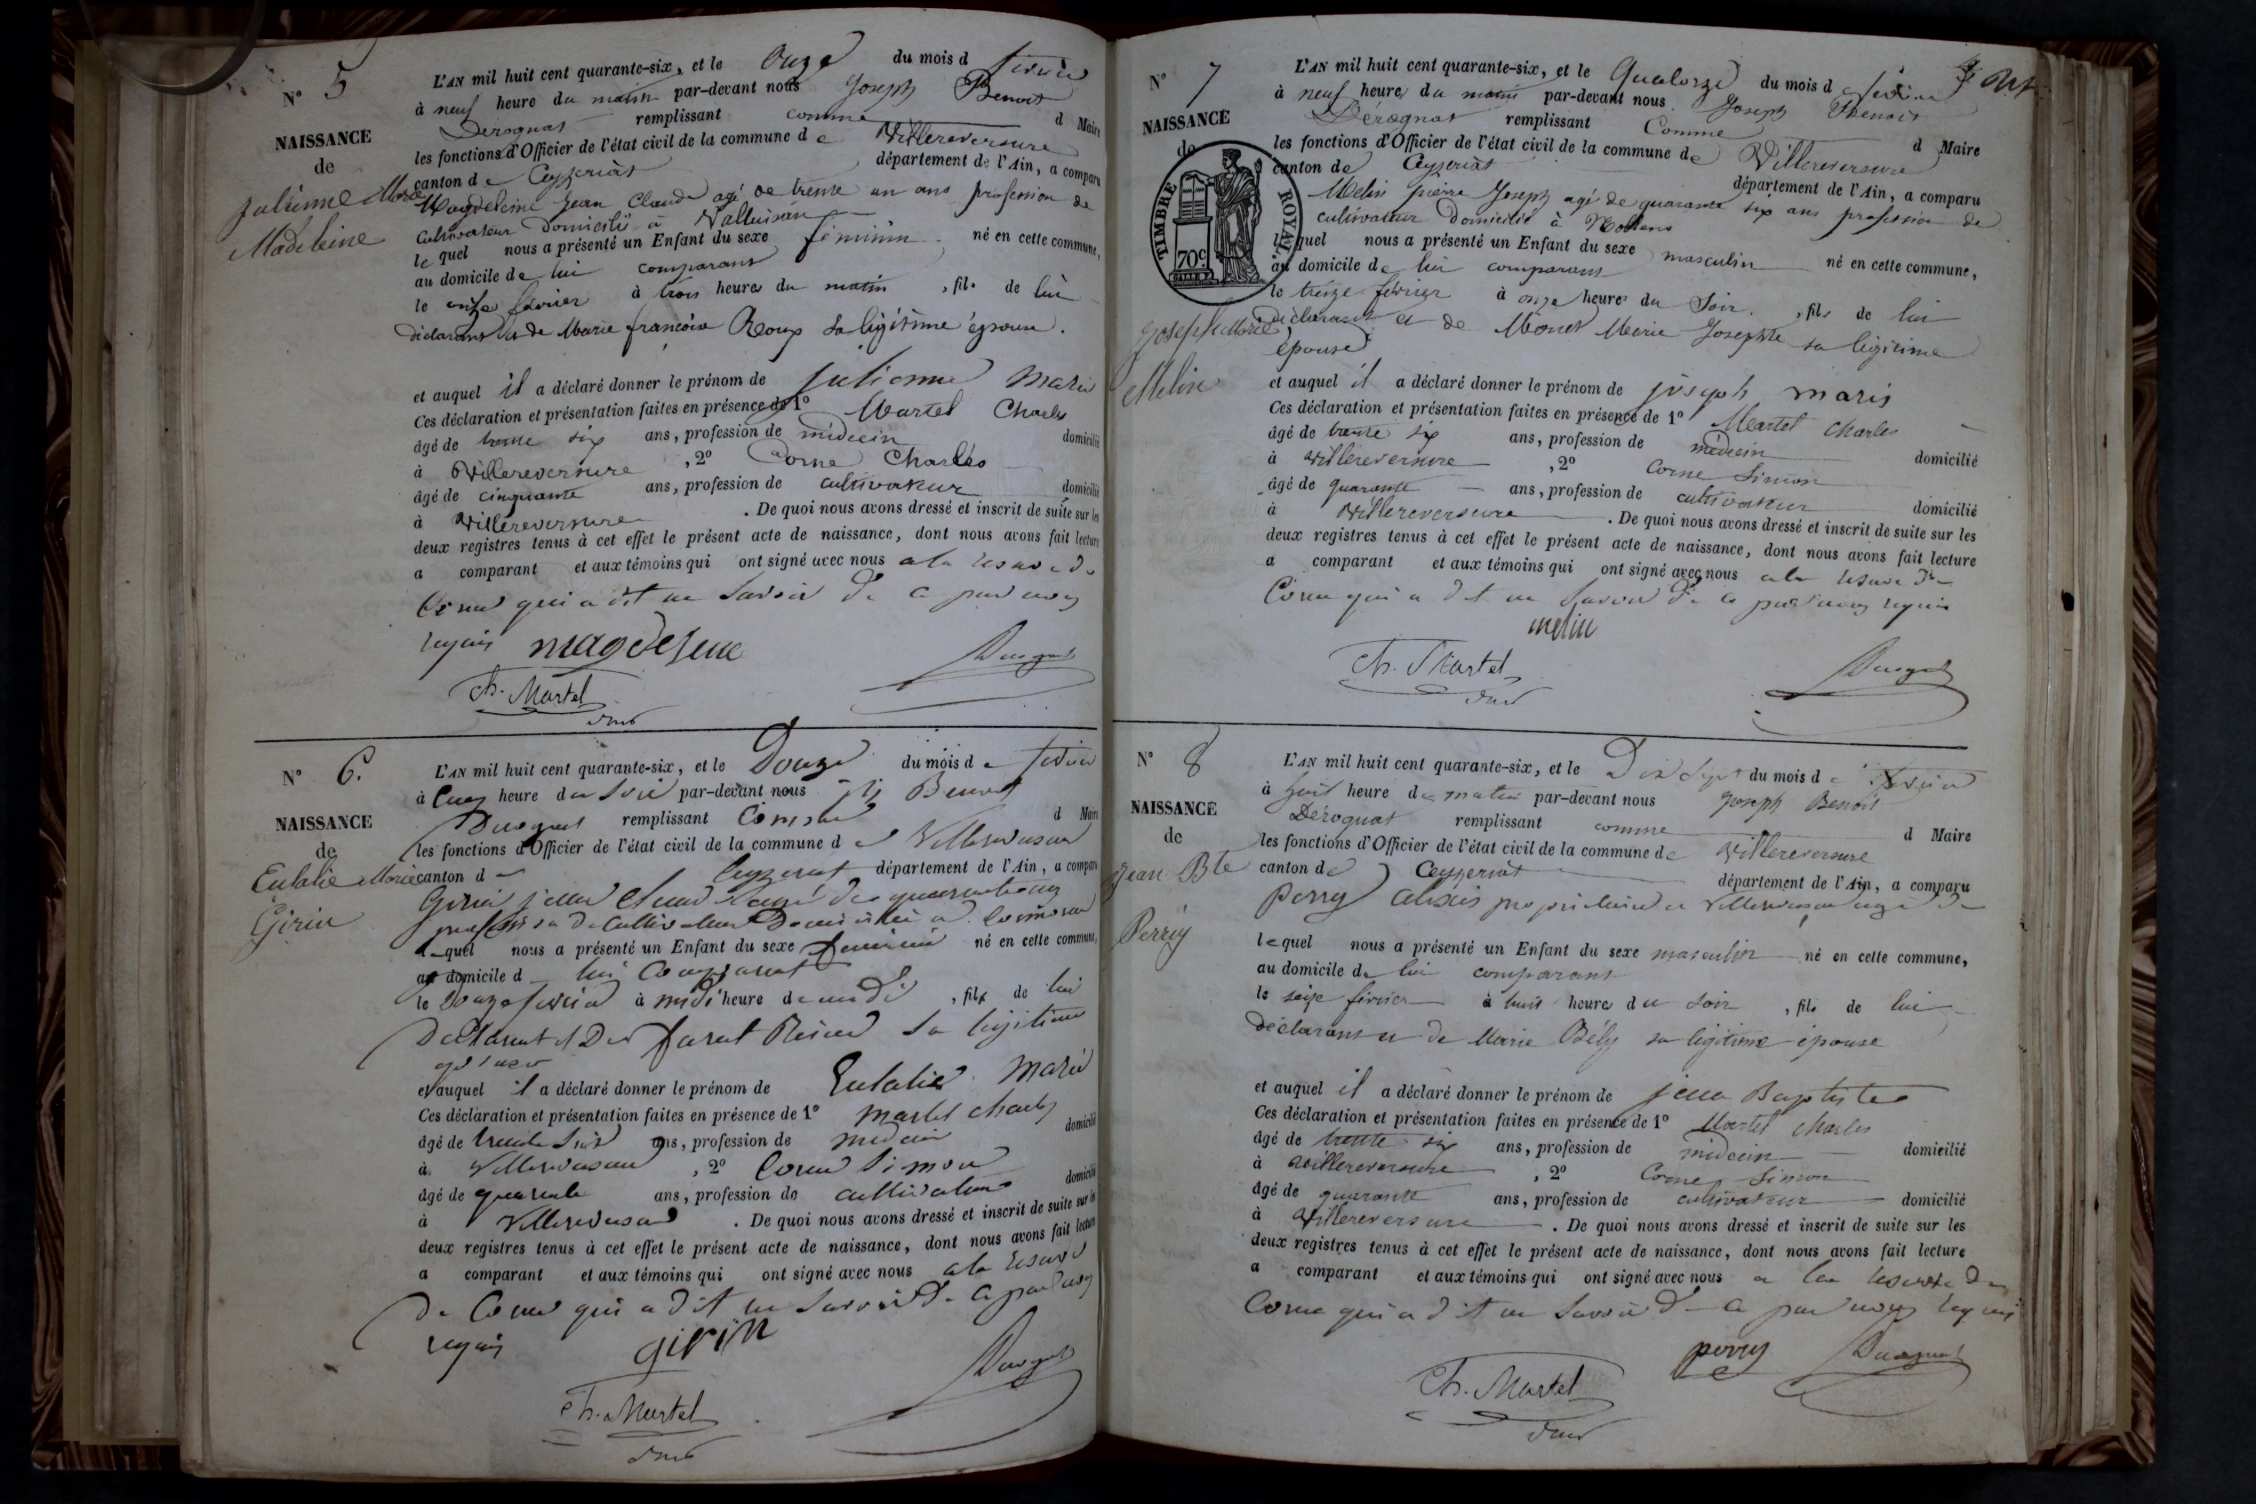 N° 5
NAISSANCE
de
Julienne Marie
Madeleine
L'AN mil huit cent quarante-six, et le Onze du mois d février
à neuf heure du matin par-devant nous Joseph Benoit
Dérognat remplissant comme d Maire
les fonctions d'Officier de l'état civil de la commune de Villereversure
canton de Ceyzeriat département de l'Ain, a comparu
Magdeleine Jean Claude agé de trente un ans profession de
cultivateur domicilié à Valluisan
lequel nous a présenté un Enfant du sexe féminin né en cette commune,
au domicile de lui comparant
le onze février à trois heures du matin, fils de lui
déclarant et de Marie françoise Roux sa légitime épouse.
et auquel il a déclaré donner le prénom de Julienne Marie
Ces déclaration et présentation faites en présence de 1° Martel Charles
âgé de trente six ans, profession de médecin domicilié
à Villereversure, 2° Corne Charles
âgé de cinquante ans, profession de cultivateur domicilié
à Villereversure. De quoi nous avons dressé et inscrit de suite sur les
deux registres tenus à cet effet le présent acte de naissance, dont nous avons fait lecture
a comparant et aux témoins qui ont signé avec nous a la reserve de
Corne qui a dit ne savoir de ce par nous
requis magdelene
Ch. Martel
N° 6.
NAISSANCE
de
Eulalie Marie
Girin
L'AN mil huit cent quarante-six, et le Douze du mois de février
à heure du soir par-devant nous Benoit
Derognat remplissant Comme d Maire
les fonctions d'Officier de l'état civil de la commune de Villereversure
canton de Ceyzeriat département de l'Ain, a comparu
Girin jean Claude agé de quarante ans
profession de Cultivateur Domicilié a
lequel nous a présenté un Enfant du sexe feminin né en cette commune,
au domicile de lui Comparant
le Douze fevrier à midi heure de midi, fils de lui
Déclarant et De sa legitime
epouse
et auquel il a déclaré donner le prénom de Eulalie Marie
Ces déclaration et présentation faites en présence de 1° Martel Charles
âgé de trente Six ans, profession de medecin domicilié
à Villereversure, 2° Corne Simon
âgé de quarente ans, profession de cultivateur domicilié
à Villereversure. De quoi nous avons dressé et inscrit de suite sur les
deux registres tenus à cet effet le présent acte de naissance, dont nous avons fait lecture
a comparant et aux témoins qui ont signé avec nous a la reserve
de Corne qui a dit ne savoir de ce par nous
requis girin
Ch. Martel
N° 7
NAISSANCE
de
TIMBRE ROYAL.
70c
Joseph Marie
Melin
L'AN mil huit cent quarante-six, et le Quatorze du mois de février
à neuf heure du matin par-devant nous Joseph Benoit
Dérognat remplissant Comme d Maire
les fonctions d'Officier de l'état civil de la commune de Villereversure
canton de Ceyzeriat département de l'Ain, a comparu
Melin pierre Joseph agé de quarante six ans profession de
cultivateur domicilié à Noblens
lequel nous a présenté un Enfant du sexe masculin né en cette commune,
au domicile de lui comparant
le treize février à onze heures du Soir, fils de lui
déclarant et de Monet Marie Josephte sa légitime
épouse
et auquel il a déclaré donner le prénom de joseph marie
Ces déclaration et présentation faites en présence de 1° Martel Charles
âgé de trente six ans, profession de médecin domicilié
à Villereversure, 2° Corne Simon
âgé de quarante ans, profession de cultivateur domicilié
à Villereversure. De quoi nous avons dressé et inscrit de suite sur les
deux registres tenus à cet effet le présent acte de naissance, dont nous avons fait lecture
a comparant et aux témoins qui ont signé avec nous a la reserve de
Corne qui a dit ne savoir de ce par nous requis
melin
Ch. Martel
N° 8
NAISSANCE
de
Jean Bte
Perrey
L'AN mil huit cent quarante-six, et le Dix Sept du mois de février
à huit heure de matin par-devant nous Joseph Benoit
Dérognat remplissant comme d Maire
les fonctions d'Officier de l'état civil de la commune de Villereversure
canton de Ceyzeriat département de l'Ain, a comparu
perrey alexis proprietaire a Villereversure agé de
lequel nous a présenté un Enfant du sexe masculin né en cette commune,
au domicile de lui comparant
le seize février à huit heures du soir, fils de lui
déclarant et de Marie Bély sa légitime épouse
et auquel il a déclaré donner le prénom de jean Baptiste
Ces déclaration et présentation faites en présence de 1° Martel Charles
âgé de trente six ans, profession de médecin domicilié
à Villereversure, 2° Corne Simon
âgé de quarante ans, profession de cultivateur domicilié
à Villereversure. De quoi nous avons dressé et inscrit de suite sur les
deux registres tenus à cet effet le présent acte de naissance, dont nous avons fait lecture
a comparant et aux témoins qui ont signé avec nous a la reserve de
Corne qui a dit ne savoir de ce par nous requis
perrey
Ch. Martel